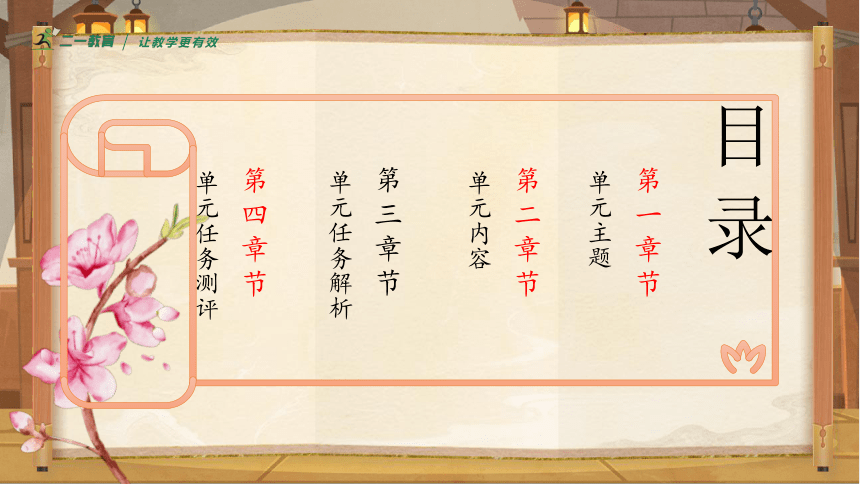 二一教育
让教学更有效
目录
第一章节
单元主题
第二章节
单元内容
第三章节
单元任务解析
第四章节
单元任务测评